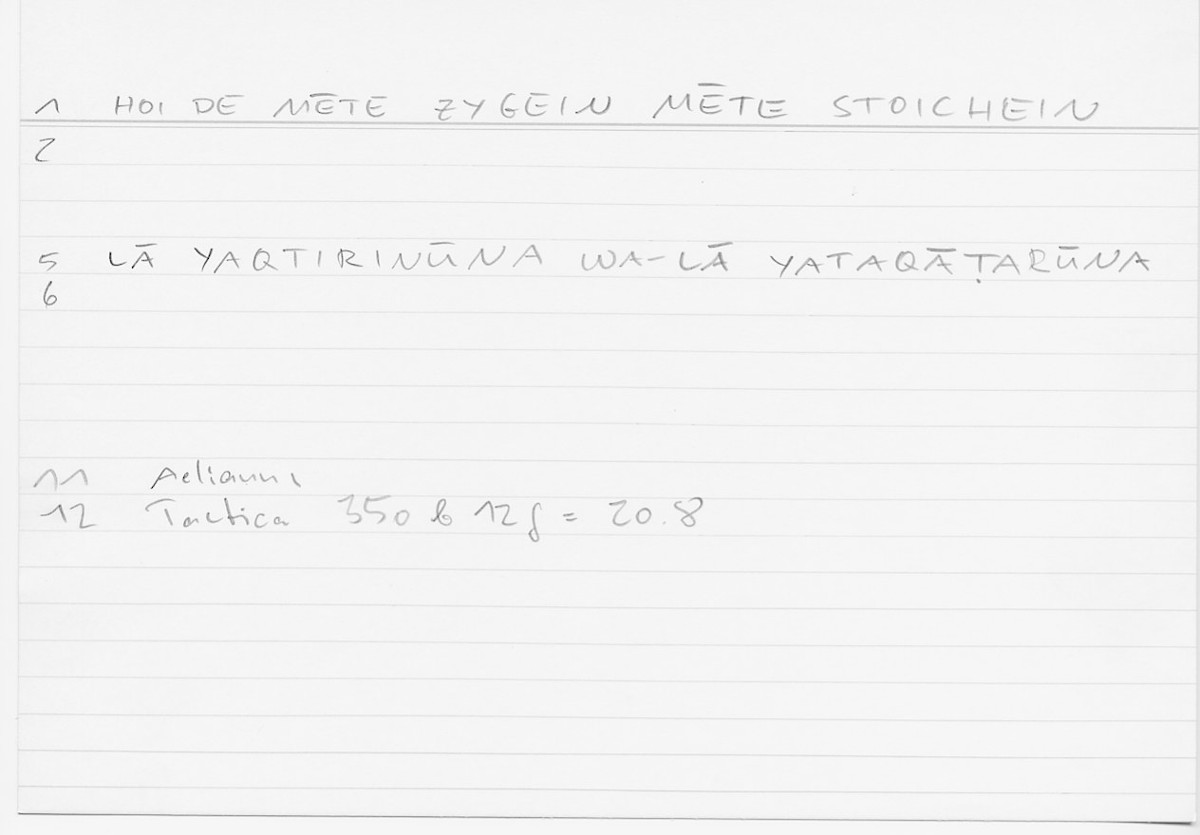 1 HOI DE MĒTE ZYGEIN MĒTE STOICHEIN
2
5 LĀ YAQTIRINŪNA WA-LĀ YATAQĀṬARŪNA
6
11 Aelianus
12 Tactica 350 b 12f = 20.8